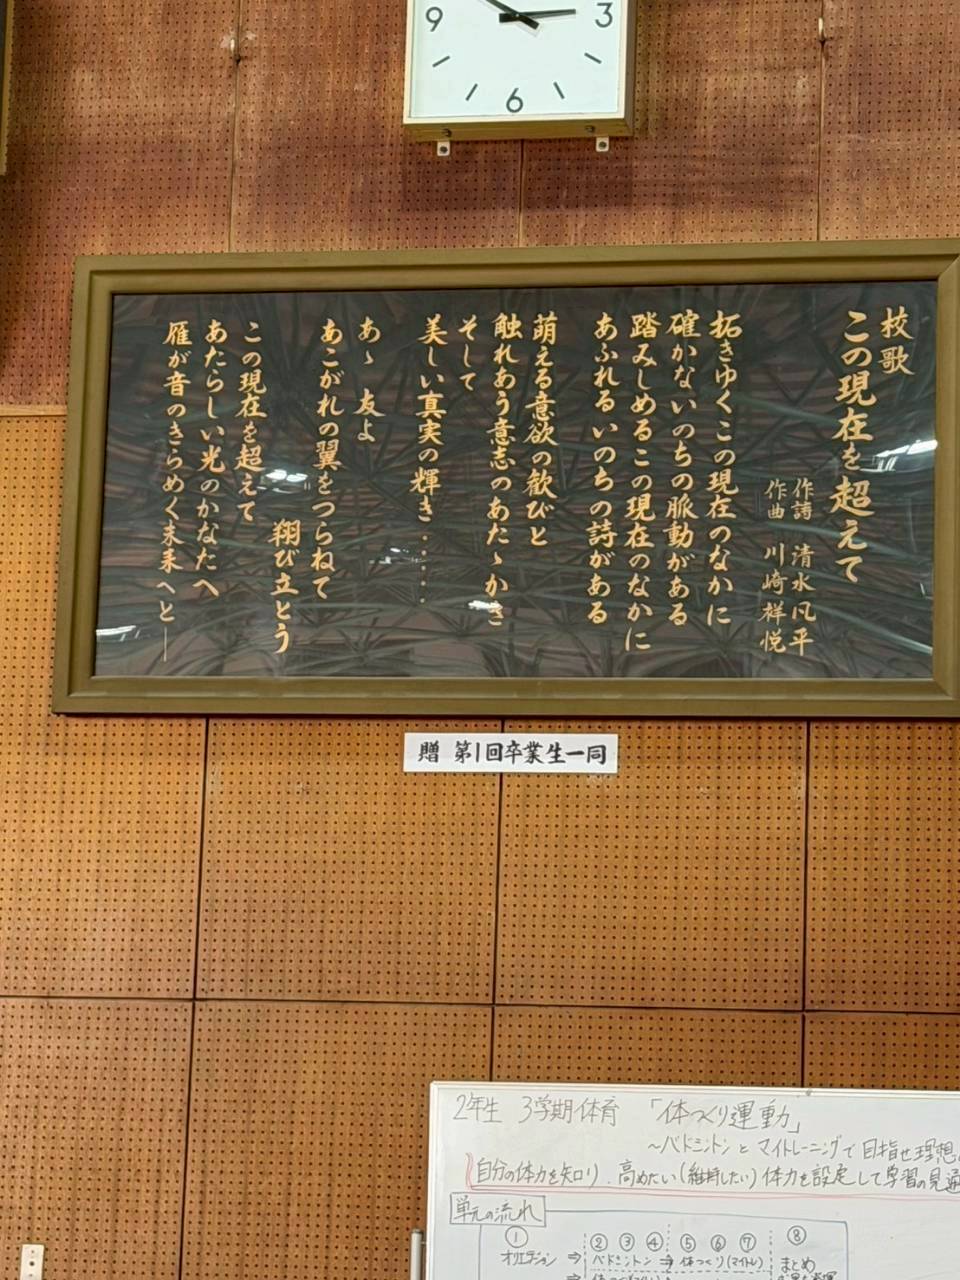 9
3
6
校歌
この現在を超えて
作詩 清水凡平
作曲 川崎祥悦
拓きゆくこの現在のなかに
確かないのちの脈動がある
踏みしめるこの現在のなかに
あふれるいのちの詩がある
萌える意欲の歓びと
触れあう意志のあたゝかき
そして
美しい真実の輝き・・・・・
あゝ 友よ
あこがれの翼をつらねて
翔び立とう
この現在を超えて
あたらしい光のかなたへ
雁が音のきらめく未来へと―
贈 第1回卒業生一同
2年生 3学期体育 「体つくり運動」
〜バドミントンとマイトレーニングで目指せ理想
自分の体力を知り、高めたい(維持したい)体力を設定して学習の見通
単元の流れ
① ② ③ ④ ⑤ ⑥ ⑦ ⑧
オリエテーション ⇒ バドミントン ⇒ 体つくり(マイトレ) まとめ